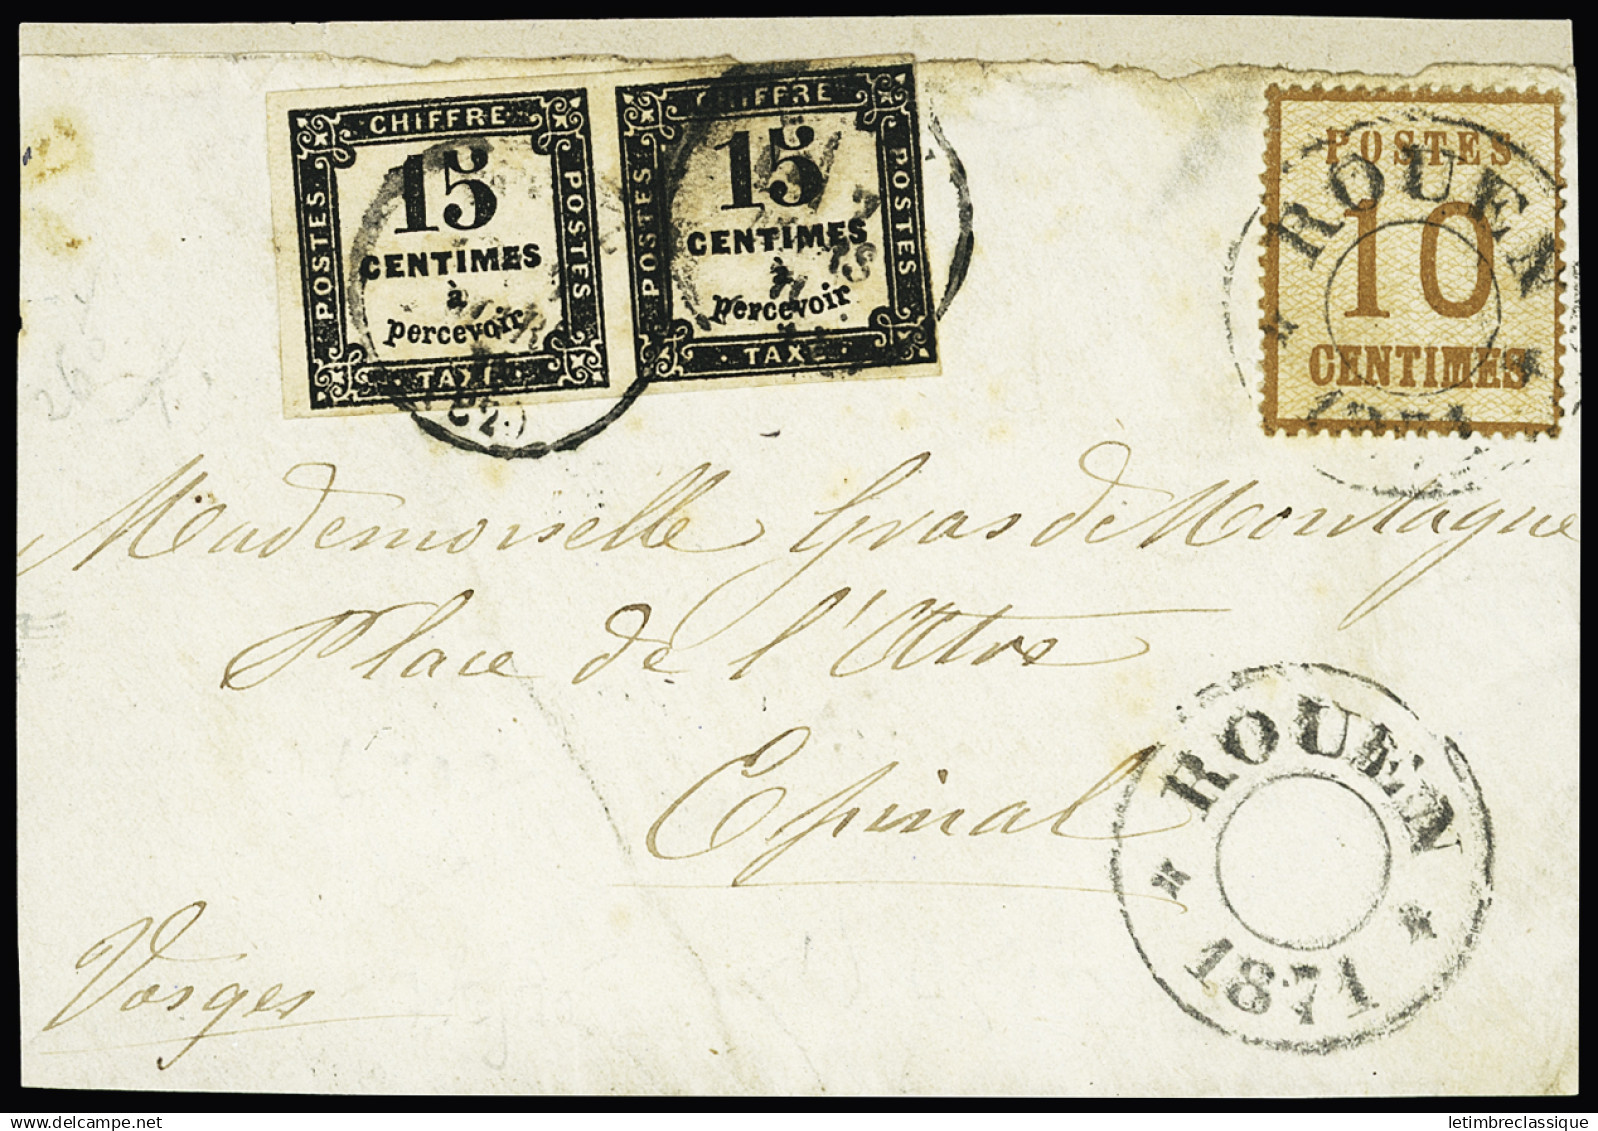 CHIFFRE
POSTES
15
CENTIMES
à
percevoir
POSTES
TAXE
CHIFFRE
POSTES
15
CENTIMES
à
percevoir
POSTES
TAXE
POSTES
10
CENTIMES
ROUEN
1871
Mademoiselle Gras de Montagne
Place de l'Atre
Epinal
Vosges
ROUEN
1871
letimbreclassique